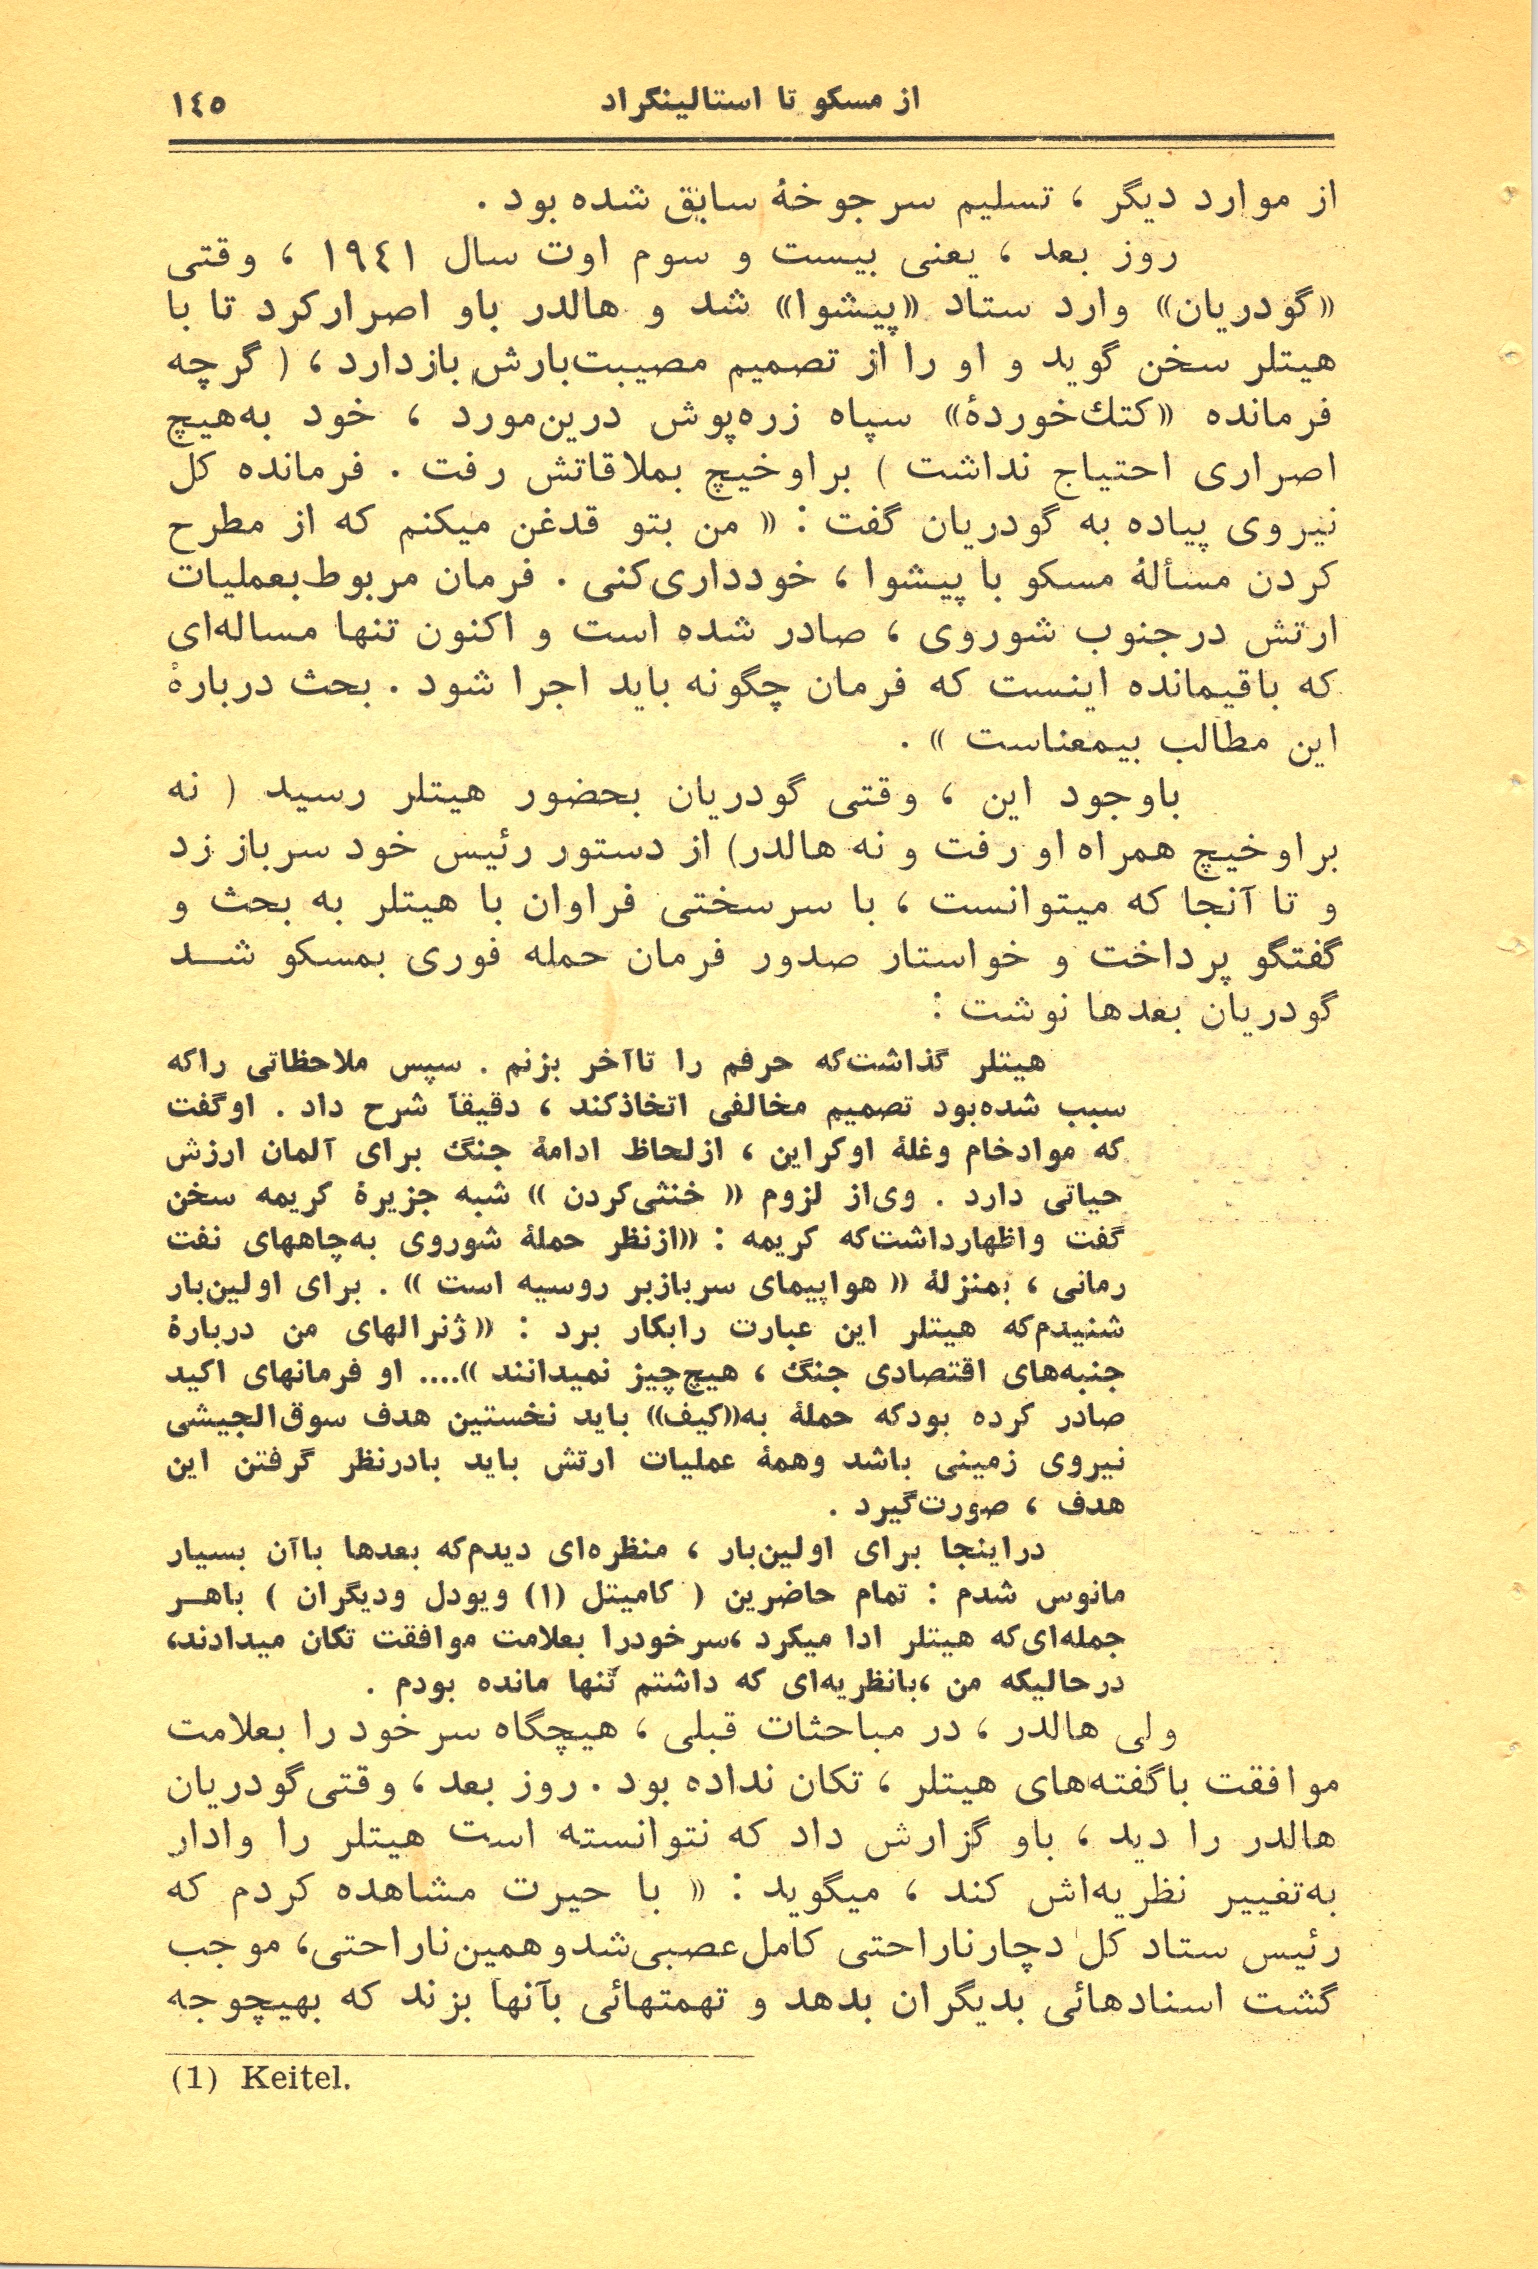 از مسکو تا استالینگراد
١٤٥
از موارد دیگر ، تسلیم سرجوخهٔ سابق شده بود .
روز بعد ، یعنی بیست و سوم اوت سال ١٩٤١ ، وقتی
«گودریان» وارد ستاد «پیشوا» شد و هالدر باو اصرارکرد تا با
هیتلر سخن گوید و او را از تصمیم مصیبت‌بارش بازدارد ، ( گرچه
فرمانده «کتك‌خوردهٔ» سپاه زره‌پوش درین‌مورد ، خود به‌هیچ
اصراری احتیاج نداشت ) براوخیچ بملاقاتش رفت . فرمانده کل
نیروی پیاده به گودریان گفت : « من بتو قدغن میکنم که از مطرح
کردن مسألهٔ مسکو با پیشوا ، خودداری‌کنی . فرمان مربوط‌بعملیات
ارتش درجنوب شوروی ، صادر شده است و اکنون تنها مساله‌ای
که باقیمانده اینست که فرمان چگونه باید اجرا شود . بحث دربارهٔ
این مطالب بیمعناست » .
باوجود این ، وقتی گودریان بحضور هیتلر رسید ( نه
براوخیچ همراه او رفت و نه هالدر) از دستور رئیس خود سرباز زد
و تا آنجا که میتوانست ، با سرسختی فراوان با هیتلر به بحث و
گفتگو پرداخت و خواستار صدور فرمان حمله فوری بمسکو شــد
گودریان بعدها نوشت :
هیتلر گذاشت‌که حرفم را تاآخر بزنم . سپس ملاحظاتی راکه
سبب شده‌بود تصمیم مخالفی اتخاذکند ، دقیقاً شرح داد . اوگفت
که موادخام وغلهٔ اوکراین ، ازلحاظ ادامهٔ جنگ برای آلمان ارزش
حیاتی دارد . وی‌از لزوم « خنثی‌کردن » شبه جزیرهٔ کریمه سخن
گفت واظهارداشت‌که کریمه : «ازنظر حملهٔ شوروی به‌چاههای نفت
رمانی ، بمنزلهٔ « هواپیمای سربازبر روسیه است » . برای اولین‌بار
شنیدم‌که هیتلر این عبارت رابکار برد : «ژنرالهای من دربارهٔ
جنبه‌های اقتصادی جنگ ، هیچ‌چیز نمیدانند ».... او فرمانهای اکید
صادر کرده بودکه حملهٔ به«کیف» باید نخستین هدف سوق‌الجیشی
نیروی زمینی باشد وهمهٔ عملیات ارتش باید بادرنظر گرفتن این
هدف ، صورت‌گیرد .
دراینجا برای اولین‌بار ، منظره‌ای دیدم‌که بعدها باآن بسیار
مانوس شدم : تمام حاضرین ( کامیتل (١) ویودل ودیگران ) باهــر
جمله‌ای‌که هیتلر ادا میکرد ،سرخودرا بعلامت موافقت تکان میدادند،
درحالیکه من ،بانظریه‌ای که داشتم تنها مانده بودم .
ولی هالدر ، در مباحثات قبلی ، هیچگاه سرخود را بعلامت
موافقت باگفته‌های هیتلر ، تکان نداده بود . روز بعد ، وقتی‌گودریان
هالدر را دید ، باو گزارش داد که نتوانسته است هیتلر را وادار
به‌تغییر نظریه‌اش کند ، میگوید : « با حیرت مشاهده کردم که
رئیس ستاد کل دچارناراحتی کامل‌عصبی‌شدوهمین‌ناراحتی، موجب
گشت اسنادهائی بدیگران بدهد و تهمتهائی بآنها بزند که بهیچوجه
(1) Keitel.